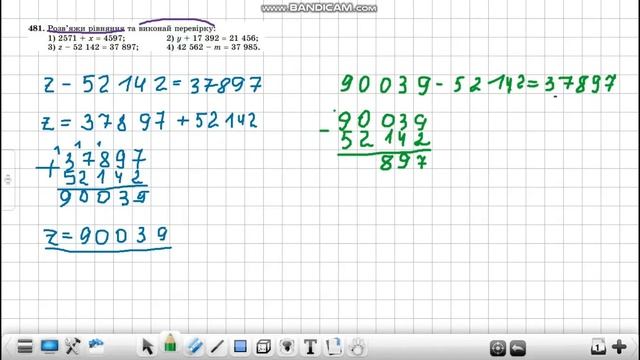 WWW.BANDICAM.COM
481. Розв'яжи рівняння та виконай перевірку:
1) 2571 + x = 4597; 2) y + 17 392 = 21 456;
3) z − 52 142 = 37 897; 4) 42 562 − m = 37 985.
z − 52 142 = 37897
z = 37897 + 52142
37897
+ 52142
90039
z = 90039
90039 − 52142 = 37897
90039
− 52142
897